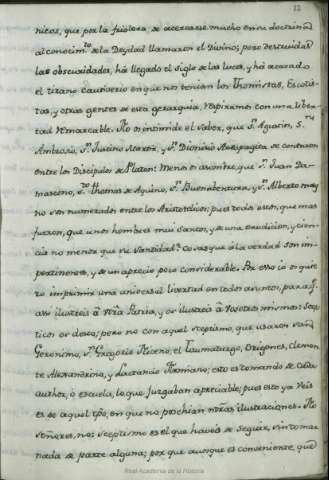 12
nicos, que por la friolera, de acercarse mucho en su doctrina
al conocim.to de la Deydad llamaron el Divino; pero desterradas
las obscuridades, há llegado el siglo de las luces, y há acavado
el tirano cautiverio en que nos tenian los Thomistas, Escotis-
tas, y otras gentes de esta gerarquia. Respiramos con una liber-
tad remarcable. No os intimide el saber, que S.n Agustin, S.n
Ambrosio, S.n Justino Martir, y S.n Dionisio Areopagita se contaron
entre los Discipulos de Platon: Menos os asombre, que S.n Juan Da-
masceno, S.to Thomas de Aquino, S.n Buenabentura, y S.n Alberto mag
no son numerados entre los Aristotelicos; pues todo esto, que mas
fueron, que unos hombres mui santos, y de una erudicion, y cien-
cia no menor que su santidad? Cosas que á la verdad son im-
pertinentes, y de un aprecio poco considerable. Por esso io os quie-
ro imprimir una universal libertad en todos asuntos, para q.e
assi ilustreis á vr̃a Patria, y os ilustreis á vosotros mismos: Scep-
ticos os deseo; pero no con aquel scepticismo, que usaron San
Geronimo, S.n Gregorio Niceno, el Taumaturgo, Origenes, Clemen-
te Alexandrino, y Lactancio Firmiano; esto es tomando de cada
author, ó escuela, lo que juzgaban apreciable; pues esto ya veis
es de aquel tpõ, en que no havian nr̃as ilustraciones. No
señores, no: scepticismo es el que haveis de seguir, sin tomar
nada de parte alguna; por que aunque es conveniente, que
Real Academia de la Historia